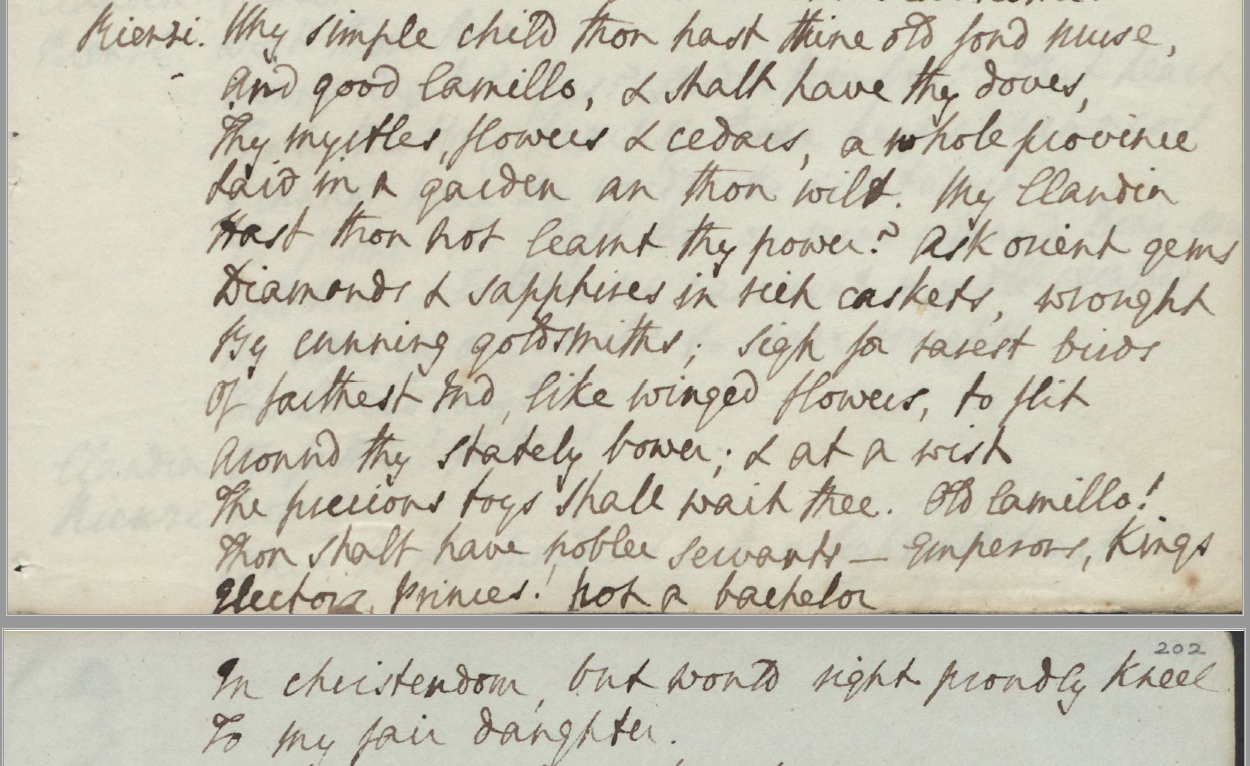 Rienzi. Why simple child thou hast thine old fond nurse,
And good Camillo, & shalt have thy doves,
Thy myrtles, flowers & cedars, a whole province
Laid in a garden an thou wilt. My Claudia
Hast thou not learnt thy power? Ask orient gems
Diamonds & sapphires in rich caskets, wrought
By cunning goldsmiths; sigh for rarest birds
Of farthest Ind, like winged flowers, to flit
Around thy stately bower; & at a wish
The precious toys shall wait thee. Old Camillo!
Thou shalt have nobler servants — Emperors, Kings
Electors, Princes! not a bachelor
202
In christendom, but would right proudly kneel
To my fair daughter.